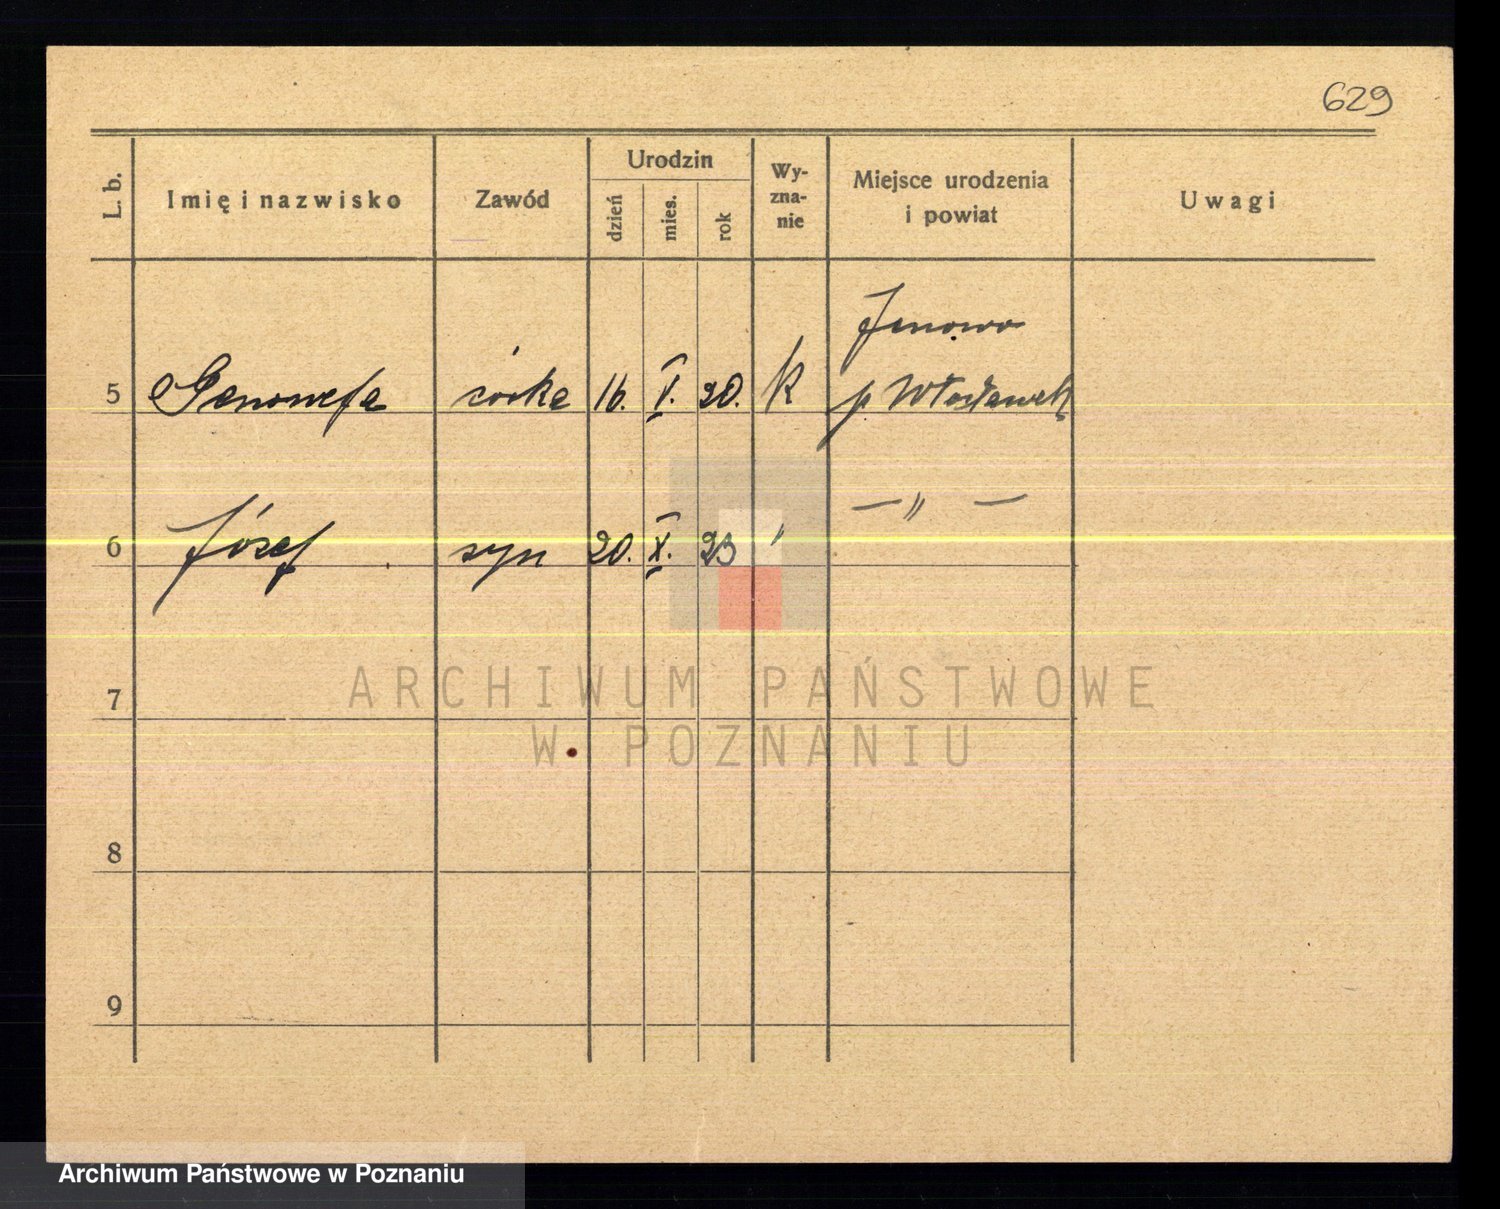 629
L. b.
Imię i nazwisko
Zawód
Urodzin
dzień
mies.
rok
Wy-
zna-
nie
Miejsce urodzenia
i powiat
Uwagi
5 Genowefa córka 16. V. 20. k Janowo
p. Włocławek
6 Józef syn 20. X. 23 " — " —
7
8
9
ARCHIWUM PAŃSTWOWE
W POZNANIU
Archiwum Państwowe w Poznaniu